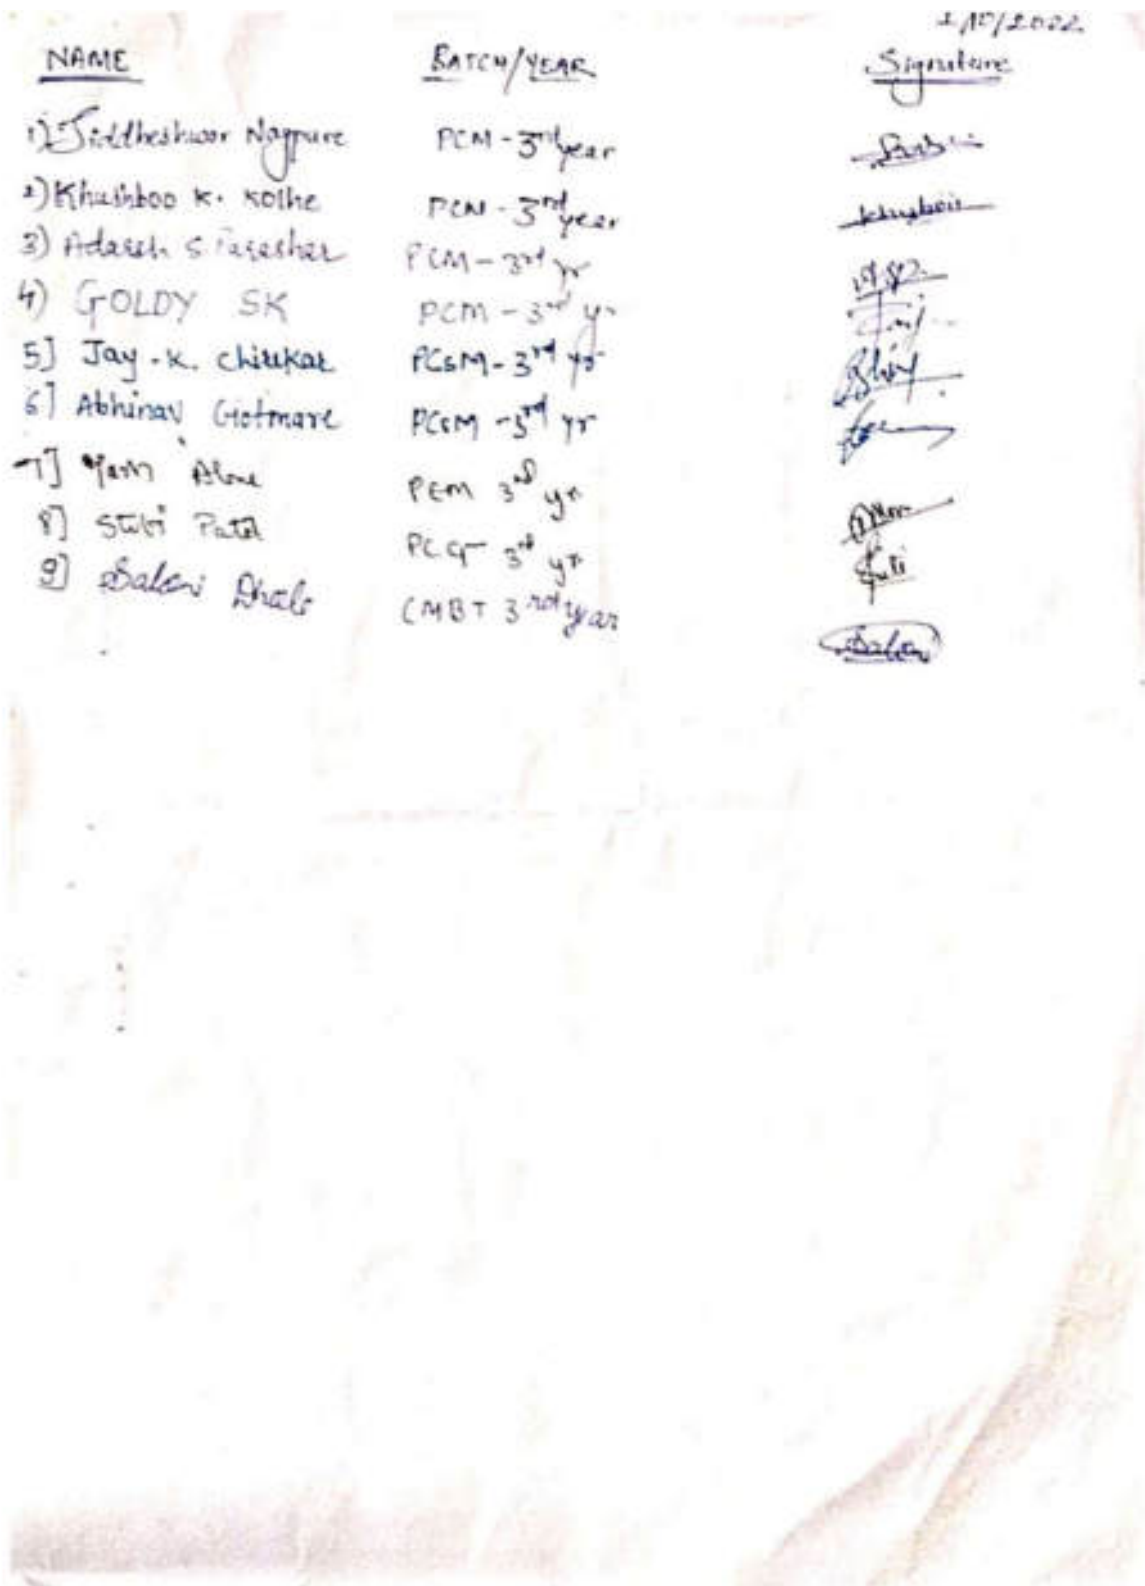 2/10/2022
NAME BATCH/YEAR Signature
1) Siddheshwar Nagpure PCM - 3rd year
2) Khushboo K. Kolhe PCM - 3rd year
3) Adarsh S. Parashar PCM - 3rd yr
4) GOLDY SK PCM - 3rd yr
5] Jay . K. Chirkar PCsM - 3rd yr
6] Abhinav Gotmare PCsM - 3rd yr
7] Yash Alone PEM 3rd yr
8] Stuti Patel PCG 3rd yr
9] Saloni Dhale CMBT 3rd year Saloni